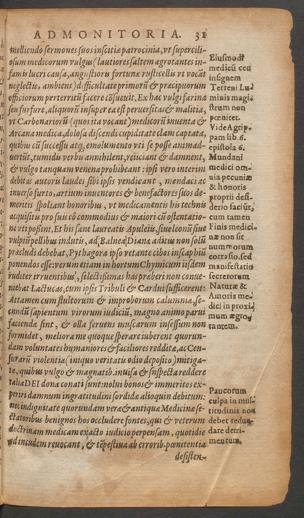 ADMONITORIA. 31
mulcendo sermones suos inscitia patrocinia, vt supercili-
osum medicorum vulgus (lautiores saltem agrotantes in-
famis lucri causa, angustioris fortunæ rusticellis vt vocāt
neglectis, ambiens) difficultate primorū & præcipuorum
officiorum perterritū facere cōsuevit. Ex hac vulgi farina
seu furfure, aliquorū insuper ea est perversitas & malitia,
vt Carbonariorū (quos ita vocant) medicorū inventa &
Arcana medica, dolosa discendi cupiditate clam captata,
quibus cū successu atq, emolumento vti se posse animad-
vertūt, tumidis verbis annihilent, reijciant & damnent,
& vulgo tanquam venena prohibeant: ipsi vero interim
debitas autoris laudes sibi ipsis vendicant, mendaci ac
inverso furto, artium inuentores & benefactores suos de-
meritis spoliant honoribus, vt medicamentis his technis
acquisitis pro suis cōmmodius & maiori cū ostentatio-
ne vti possint. Et hi sane laureatis Apuleiis, siue leonū siue
vulpiū pellibus indutis, ad Balnea Diana aditus non solū
præcludi debebat, Pythagora ipso vetante cibos in scaphiū
ponendos esse: verum etiam in hortum Chymicum iisdem
ruditer irruentibus, selectissimas has præbere non conve-
nebat Lactucas, cum ipsis Tribuli & Cardui sufficerent:
Attamen cum stultorum & improborum calumnia, se-
cundū sapientum virorum iudiciū, magno animo parui
facienda sint, & olla fervens muscarum insessum non
formidet, meliora me quoque sperare iuberent quorun-
dam voluntates humaniores & faciliores reddita, ac Cen-
surarū violentia (iniquo veritatis odio deposito) mitiga-
ta, quibus vulgo & magnatib. inuisa & suspecta reddere
talia DEI dona conati sunt: nolui bonos & immeritos ex-
periri damnum ingratitudini sordida alioquin debitum:
nec indignitate quorundam veræ & antiqua Medicina se-
ctatoribus benignos hos occludere fontes, qui & veterum
doctrinam medicam exacto iudicio perpensam, quotidie
ad incudem revocant, & tēpestiva ab errorib. pœnitentia
desisten-
Eiusmodi
medicū ceu
insignem
Terreni Lu-
minis magi-
strum non
pœnitet.
Vide Agrip-
pam lib. 6.
epistola 6.
Mundani
medici om-
nia pecuniæ
& honoris
proprii desi-
derio faciūt,
cum tamen
Finis medici-
næ non sit
nummorum
corrasio, sed
manifestatio
secretorum
Naturæ &
Amoris me-
dici in proxi-
mum ægro-
tantem.
Paucorum
culpa in mul-
titudinis non
debet redun-
dare detri-
mentum.